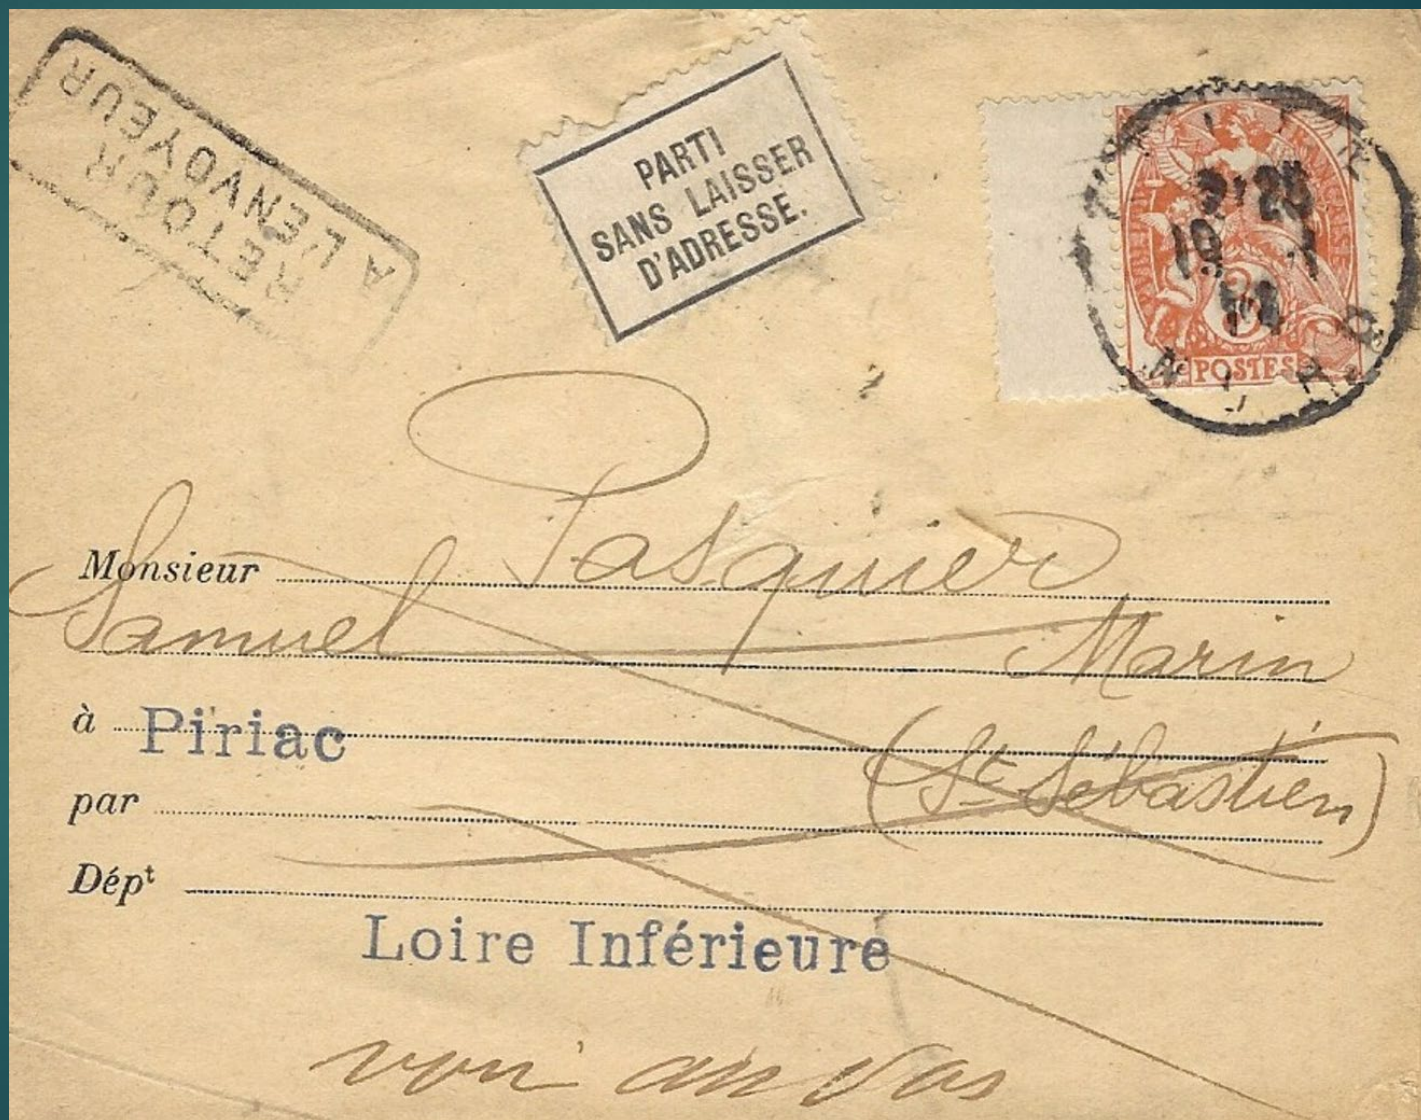 RETOUR
A L'ENVOYEUR
PARTI
SANS LAISSER
D'ADRESSE.
REPUBLIQUE FRANÇAISE
2
POSTES
19
Monsieur Pasquier
Samuel Marin
à Piriac
(St Sébastien)
par
Dépt
Loire Inférieure
voir au dos